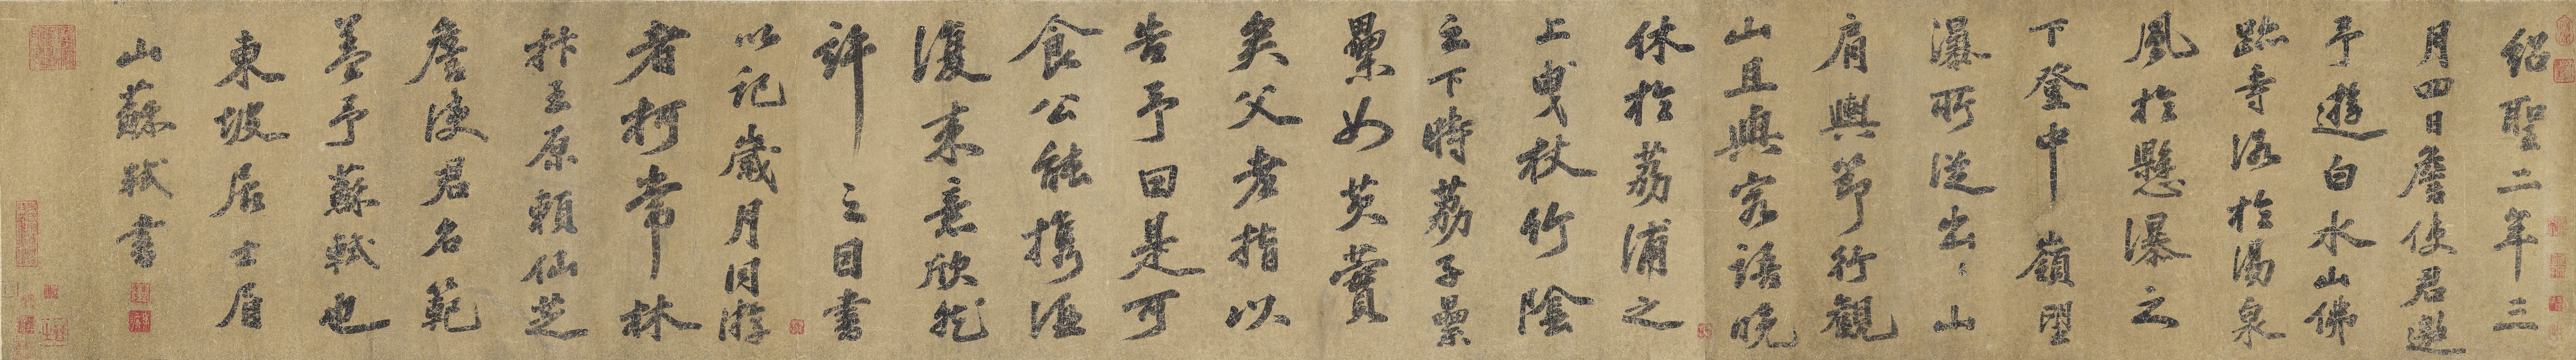 紹聖二年三
月四日詹使君邀
予遊白水山佛
跡寺浴於湯泉
風於懸瀑之
下登中嶺望
瀑所從出〻山
肩輿節行觀
山且與客語晚
休於荔浦之
上曳杖竹陰
之下時荔子纍
纍如芡實
矣父老指以
告予曰是可
食公能攜酒
復來意欣然
許之日書
以記歲月同游
者柯常林
抃王原賴仙芝
詹使君名範
蓋予蘇軾也
東坡居士眉
山蘇軾書